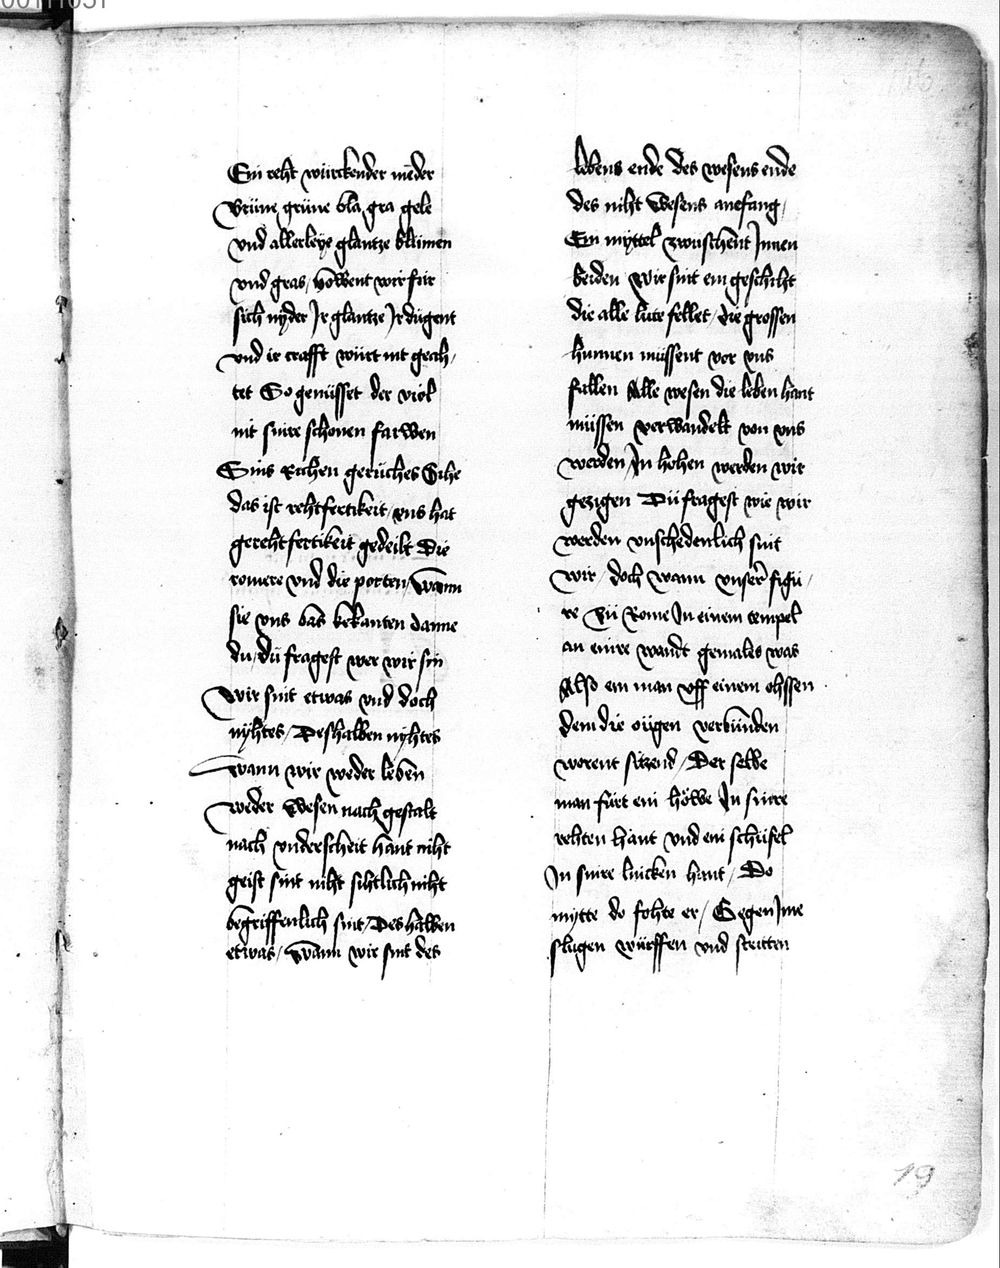 Ein reht würckender meder
Brüne grüne bla gra gele
vnd allerleÿe glantze blümen
vnd gras höwent wir für
sich nÿder Jr glantze Jr dugent
vnd ir crafft würt nit geah,
tet So genüsset der viol
nit sinre schonen farwen
Sins Richen gerüches Sihe
das ist rehtfertikeit, vns hat
gerehtfertikeit gedeilt Die
romere vnd die poeten, wann
sie vns bas bekanten danne
du, dü fragest wer wir sin
wir sint etwas vnd doch
nÿhtes, Deshalben nÿhtes
wann wir weder leben
weder wesen nach gestalt
nach vnderscheit hant niht
geist sint niht sihtlich niht
begriffenlich sint, Des halben
etwas, wann wir sint des
lebens ende des wesens ende
des niht wesens anefang,
Ein mÿttel zwuschent Jnnen
beiden wir sint ein geschiht
die alle lute fellet, die grossen
hunnen müssent vor vns
fallen Alle wesen die leben hant
müssen verwandelt von vns
werden Jn hohen werden wir
gezigen Dü fragest wie wir
werden vnschedenlich sint
wir, doch wann vnser figü,
re Zü Rome Jn einem tempel
an einre wandt gemales was
Also ein man vff einem ohssen
dem die oügen verbünden
werent sitzend, Der selbe
man fürt ein höwe Jn sinre
rehten hant vnd ein schüfel
Jn sinre lincken hant, Do
mÿtte do fohte er, Gegen Jme
slugen würffen vnd stritten
19